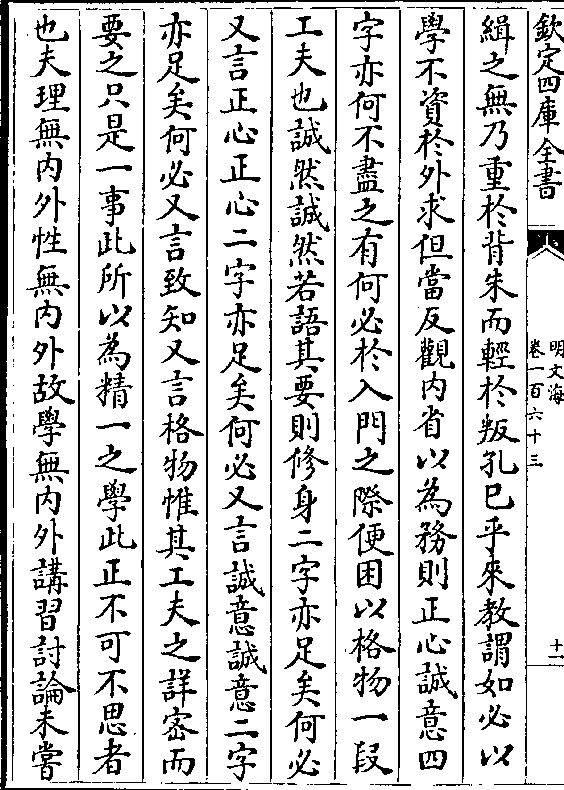 欽定四庫全書
明文海
卷一百六十三
十一
緝之無乃重於背朱而輕於叛孔已乎來教謂如必以
學不資於外求但當反觀内省以為務則正心誠意四
字亦何不盡之有何必於入門之際便困以格物一段
工夫也誠然誠然若語其要則修身二字亦足矣何必
又言正心正心二字亦足矣何必又言誠意誠意二字
亦足矣何必又言致知又言格物惟其工夫之詳宻而
要之只是一事此所以為精一之學此正不可不思者
也夫理無内外性無内外故學無内外講習討論未嘗